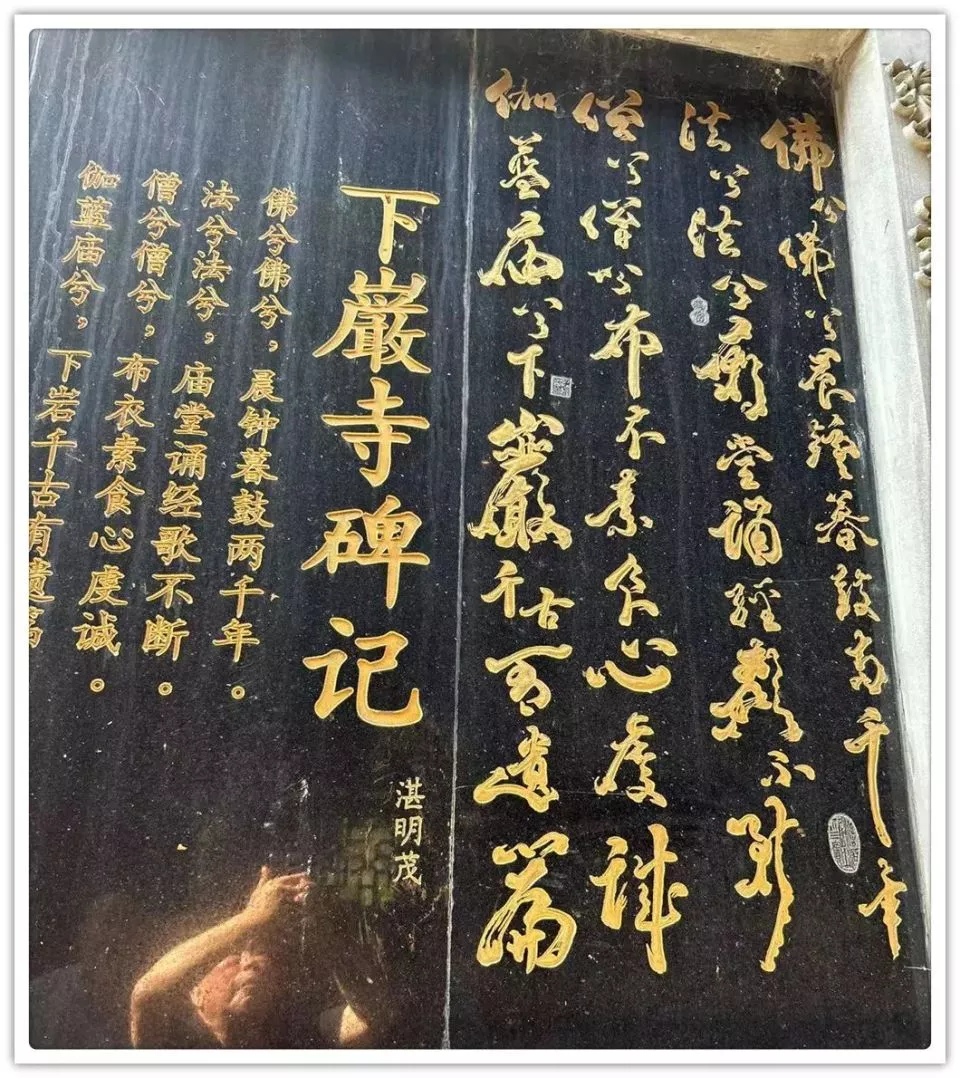 佛兮佛兮晨鐘暮鼓两千年
法兮法兮廟堂誦經歌不断
僧兮僧兮布衣素食心虔誠
伽蓝庙兮下巖千古有遺篇
下巖寺碑记
湛明茂
佛兮佛兮，晨钟暮鼓两千年。
法兮法兮，庙堂诵经歌不断。
僧兮僧兮，布衣素食心虔诚。
伽蓝庙兮，下岩千古有遗篇